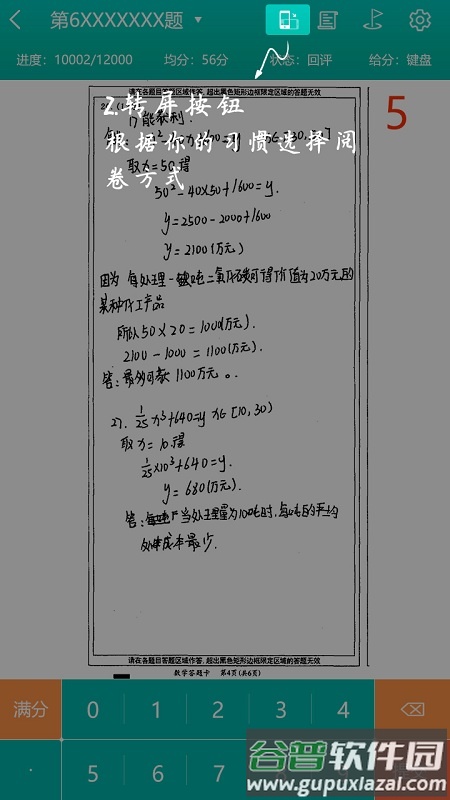 第6XXXXXXX题
进度：10002/12000 均分：56分 状态：回评 给分：键盘
请在各题目答题区域作答，超出黑色矩形边框限定区域的答题无效
5
2.转屏按钮
根据你的习惯选择阅
卷方式
取x=50得
50²-40×50+1600=y.
y=2500-2000+1600
y=2100(万元)
因为 每处理一吨二氧化碳可得价值为20万元的
某种化工产品
所以50×20=1000(万元).
2100-1000=1100(万元).
答：最多可获1100万元。
27. 1/25 x³+640=y x∈[10,30)
取x=10.得
1/25×10³+640=y.
y=680(万元).
答：当处理量为10吨时，每吨的平均
处理成本最少.
请在各题目答题区域作答，超出黑色矩形边框限定区域的答题无效
数学答题卡 第4页(共6页)
满分 0 1 2 3 4
· 5 6 7
谷普软件园
www.gupuxiazal.com